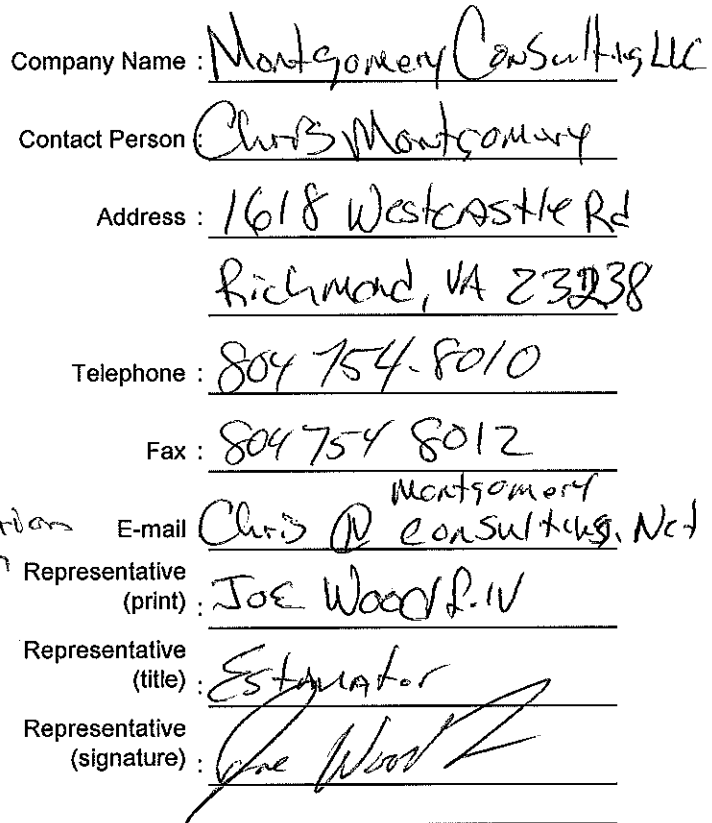 Company Name : Montgomery Consulting LLC
Contact Person : Chris Montgomery
Address : 1618 Westcastle Rd
Richmond, VA 23238
Telephone : 804 754-8010
Fax : 804 754 8012
Montgomery
E-mail Chris @ consulting.Net
Representative
(print) : JOE Wood
Representative
(title) : Estimator
Representative
(signature) : Joe Wood